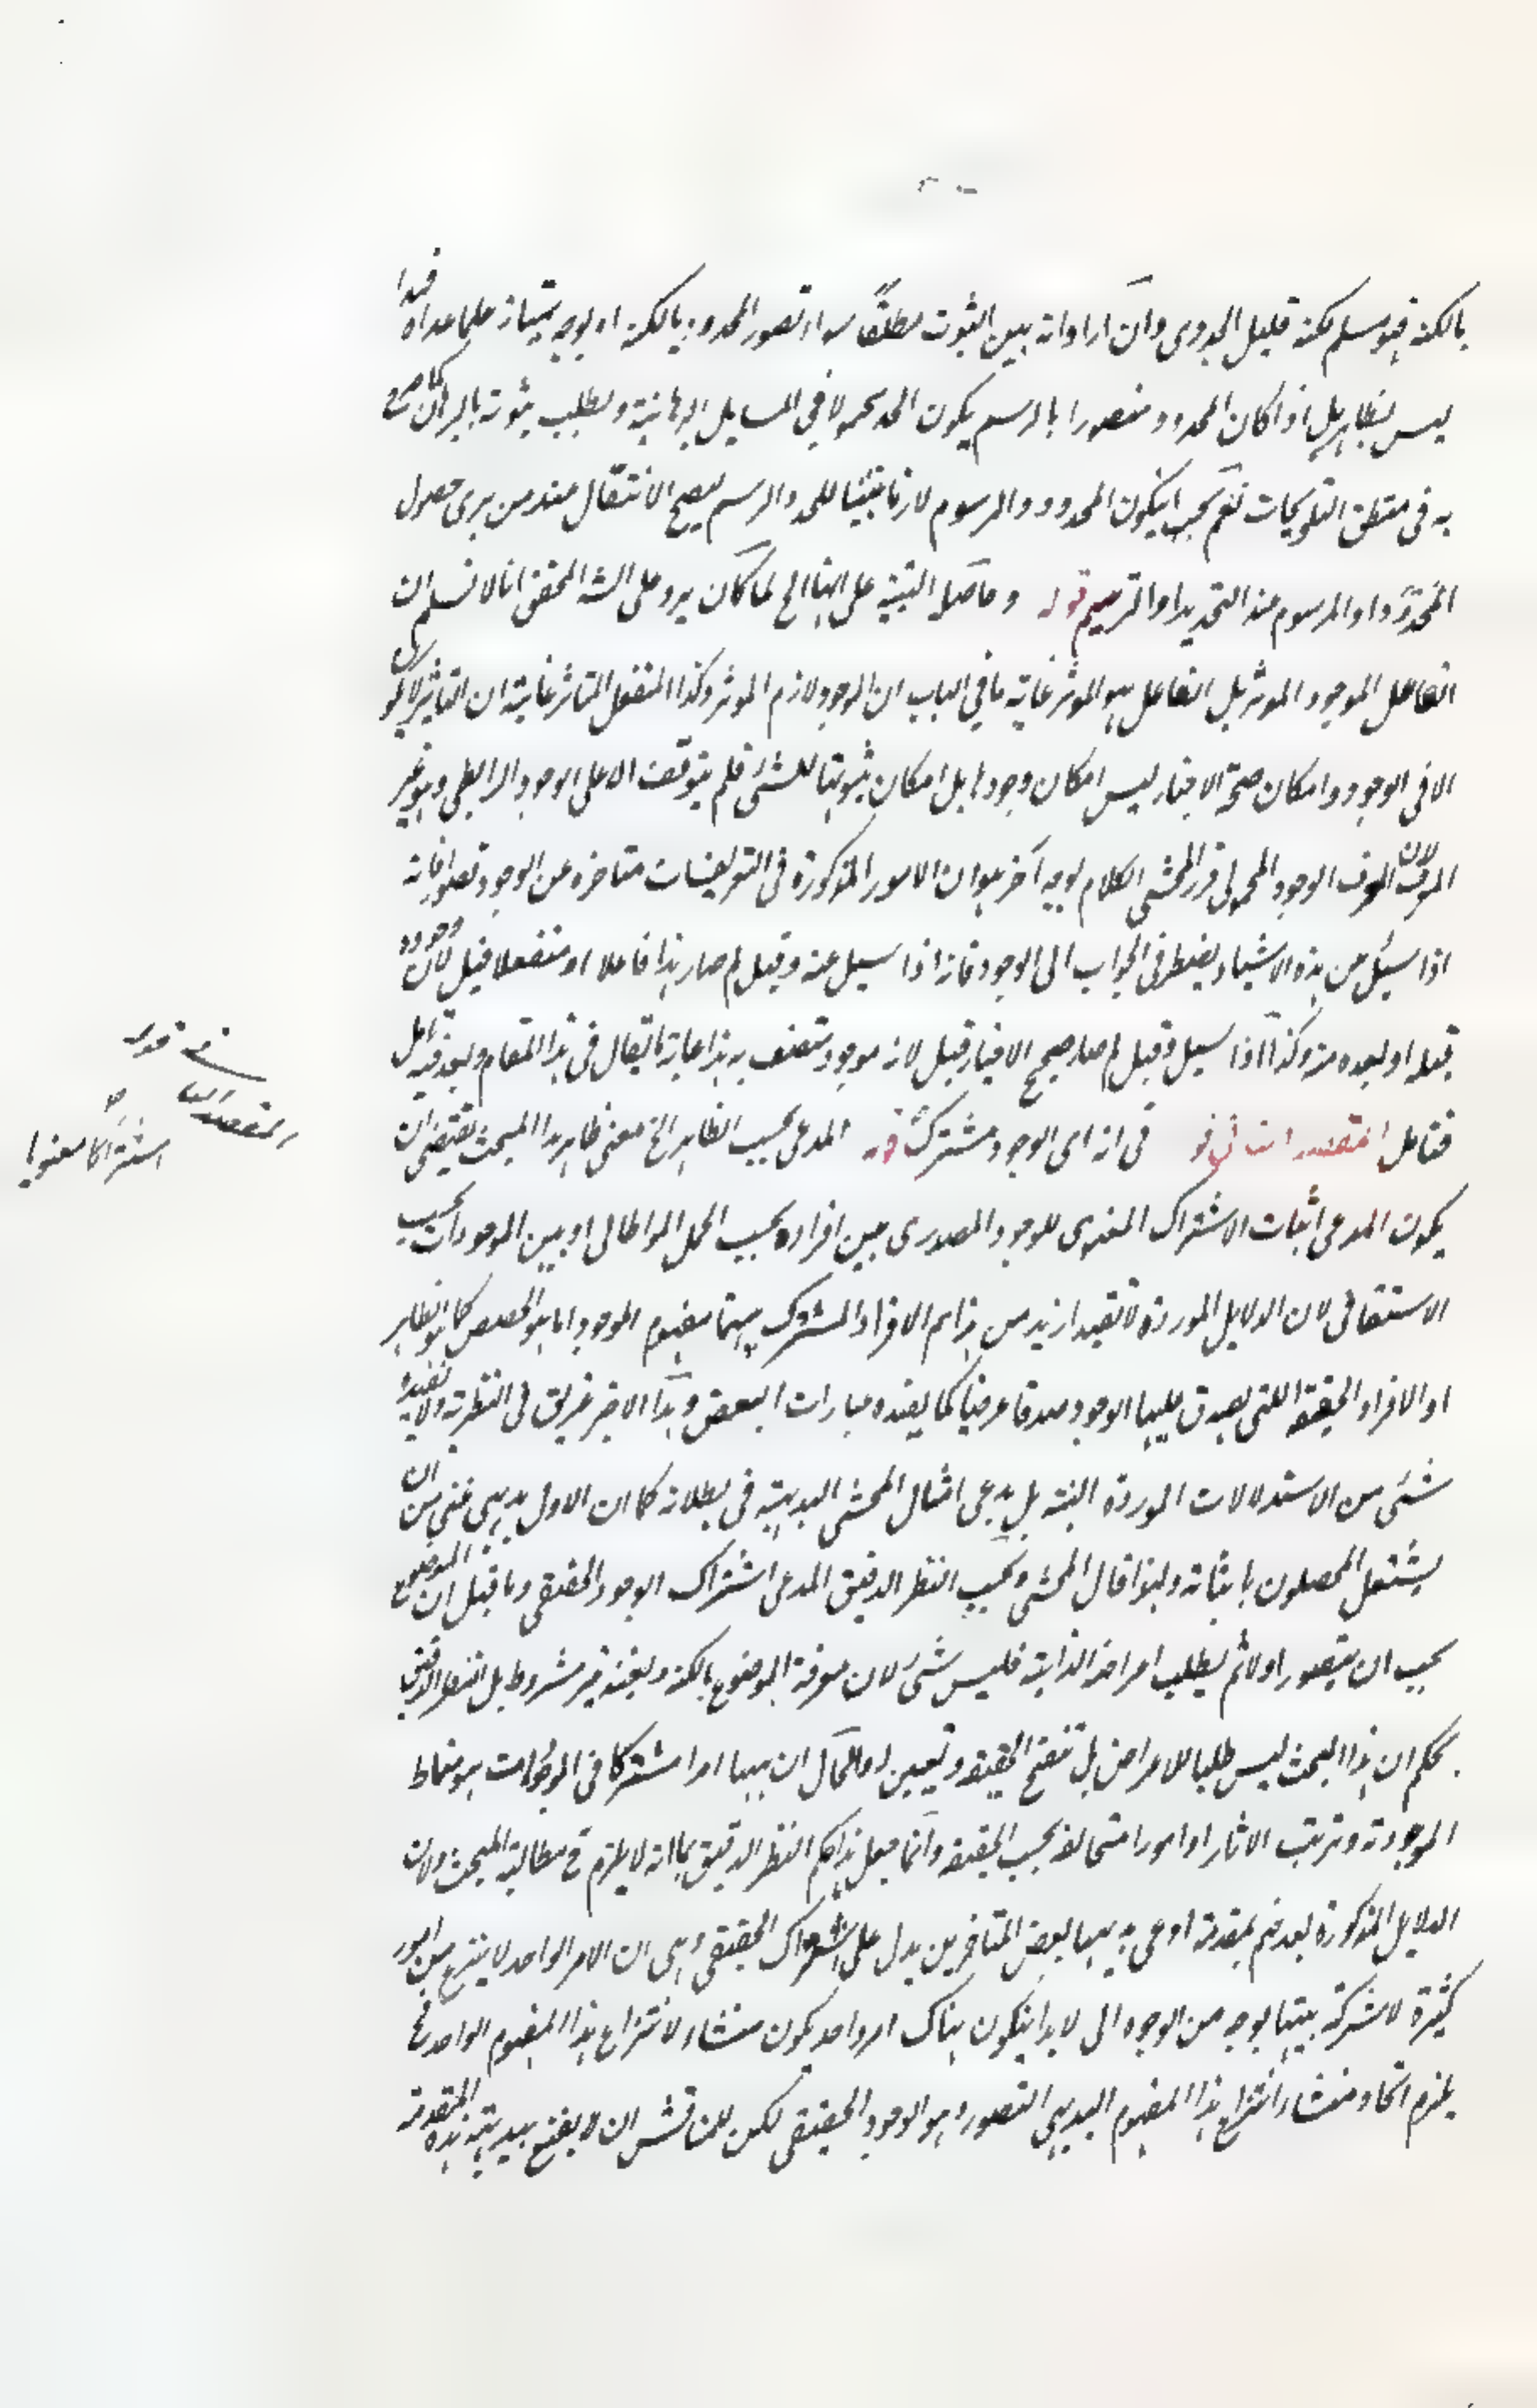 بالكنه فهو مسلم لكنه قليل الجدوى وان اراد انه بين الثبوت مطلقا سواء تصور المحدود بالكنه او بوجه يمتاز عما عداه فهذا
ليس بظاهر بل اذا كان المحدود متصورا بالرسم يكون الحد محمولا في المسايل البرهانية ويطلب ثبوته بالبرهان كما صرح
به في منطق التلويحات نعم يجب ان يكون المحدود والمرسوم لازما بينا للحد والرسم ليصح الانتقال عند من يرى حصول
المحدود او المرسوم عند التحديد او الترسيم قوله وحاصله التنبيه على انها الخ لما كان يرد على الش المحقق انا لا نسلم ان
الفاعل الموجود الموثر بل الفاعل هو الموثر غاية ما في الباب ان الوجود لازم الموثر وكذا المنفعل المتاثر غايته ان التاثير لا يكون
الا في الوجود وامكان صحة الاخبار ليس امكان وجودها بل امكان ثبوتها للشئ فلم يتوقف الا على الوجود الرابطي وهو غير
المعرف لان المعرف الوجود المحمولي قرر المحشي الكلام بوجه آخر هو ان الامور المذكورة في التعريفات متاخرة عن الوجود تصورا فانه
اذا سئل عن هذه الاشياء يضطر في الجواب الى الوجود فانه اذا سيل عنه وقيل لم صار هذا فاعلا او منفعلا قيل لان وجوده
قبله او بعده منه وكذا اذا سيل وقيل لم صار صحيح الاخبار قيل لانه موجود متصف به هذا غاية ما يقال في هذا المقام وبعد فيه تامل
فتامل المقصد الثاني في انه اى الوجود مشترك قوله المدعى بحسب الظاهر الخ معنى ظاهر هذا المبحث يقتضي ان
يكون المدعى اثبات الاشتراك المعنوى للوجود المصدرى بين افراده بحسب الحمل المواطاتى او بين الموجودات بحسب
الاشتقاقى لان الدلايل الموردة لا تفيد ازيد من هذا ثم الافراد المشترك بينها مفهوم الوجود اما هو الحصص كما هو الظاهر
او الافراد الحقيقة اللتى يصدق عليها الوجود صدقا عرضيا كما يفيده عبارات البعض وهذا الاخير غريق في النظرية ولا يفيده
شئ من الاستدلالات الموردة البتة بل يدعى امثال المحشي البديهية في بطلانه كما ان الاول بديهى غنى من ان
يشتغل المحصلون باثباته ولهذا قال المحشي وبحسب النظر الدقيق المدعى اشتراك الوجود الحقيقى وما قيل ان الموضوع
يجب ان يتصور اولا ثم يطلب اعراضه الذاتية فليس شئ لان معرفة الموضوع بالكنه وبعينه غير مشروط بل النظر الدقيق
يحكم ان هذا البحث ليس طلبا للاعراض بل تنقيح الحقيقة وتعيين لها والمآل ان ههنا امرا مشتركا في الموجودات هو مناط
الموجودية وترتب الاثار او امورا متخالفة بحسب الحقيقة وانما جعل هذا حكم النظر الدقيق بما انه لا يلزم ح مطالبة المبحث ولان
الدلايل المذكورة بعد ضم مقدمة ادعى بديهيتها بعض المتاخرين يدل على اشتراك الحقيقى وهى ان الامر الواحد لا ينتزع من امور
كثيرة لا شركة بينها بوجه من الوجوه اى لا بد ان يكون هناك امر واحد يكون منشاء لانتزاع هذا المفهوم الواحد ح
يلزم اتحاد منشاء انتزاع هذا المفهوم البديهى التصور وهو الوجود الحقيقى لكن للمناقش ان لا يقنع ببديهية هذه المقدمة
المقصد الثانى
اشتراكا معنويا